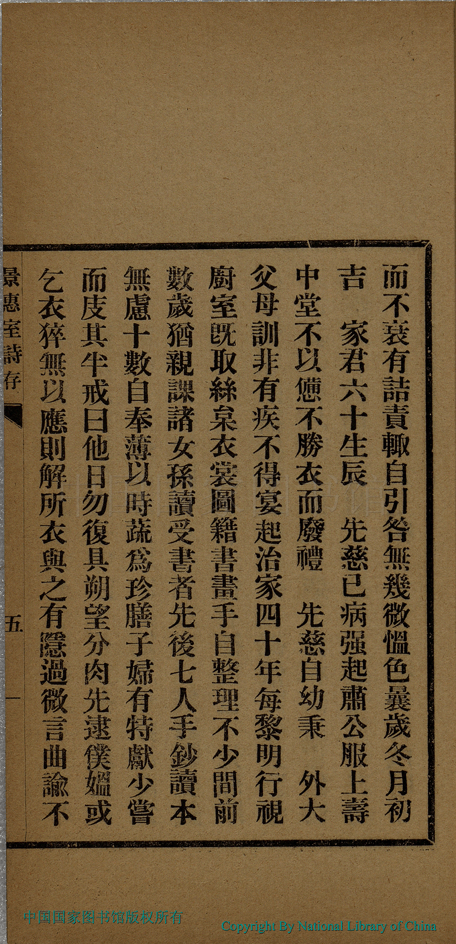 而不衰有詰責輙自引咎無幾微慍色曩歲冬月初
吉　家君六十生辰　先慈已病强起肅公服上壽
中堂不以憊不勝衣而廢禮　先慈自幼秉　外大
父母訓非有疾不得宴起治家四十年每黎明行視
廚室旣取絲枲衣裳圖籍書畫手自整理不少間前
數歲猶親課諸女孫讀受書者先後七人手鈔讀本
無慮十數自奉薄以時蔬爲珍膳子婦有特獻少嘗
而庋其半戒曰他日勿復具朔望分肉先逮僕媼或
乞衣猝無以應則解所衣與之有隱過微言曲諭不
景惠室詩存
五
中国国家图书馆版权所有
Copyright By National Library of China